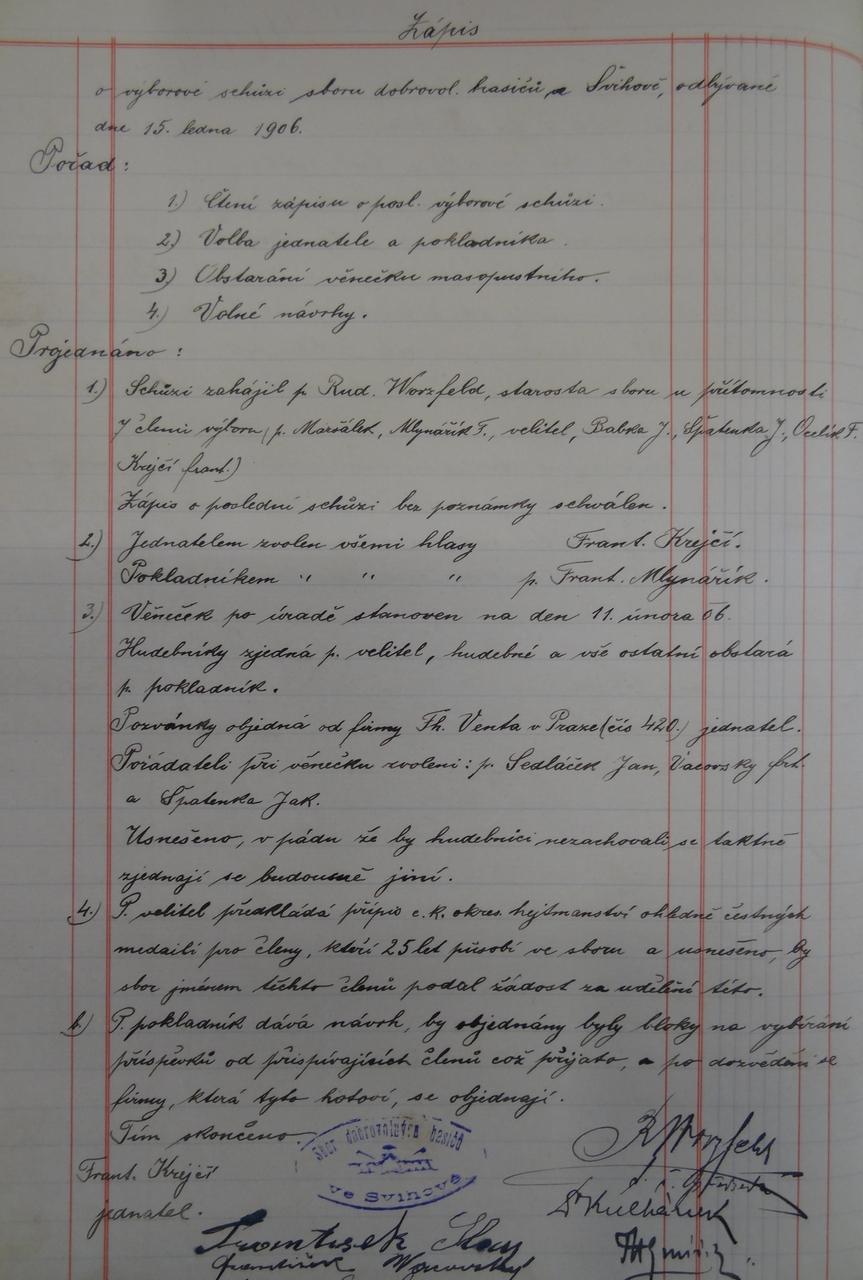 Zápis
o výborové schůzi sboru dobrovol. hasičů, odbývané
dne 15. ledna 1906.
Pořad:
1.) Čtení zápisu o posl. výborové schůzi.
2.) Volba jednatele a pokladníka.
3) Obstarání věnečku masopustního.
4.) Volné návrhy.
Projednáno:
1.) Schůzi zahájil p. Rud. Worzfeld, starosta sboru u přítomnosti
7 členů výboru (p. Maršálek, Mlynářík F., velitel, Babka J., Špatenka J., Ocelík F.
Krejčí frant.)
Zápis o poslední schůzi bez poznámky schválen.
2.) Jednatelem zvolen všemi hlasy Frant. Krejčí.
Pokladníkem " " " p. Frant. Mlynářík.
3.) Věneček po úradě stanoven na den 11. února 06.
Hudebníky zjedná p. velitel, hudebné a vše ostatní obstará
p. pokladník.
Pozvánky objedná od firmy Th. Venta v Praze (čís 420.) jednatel.
Pořádateli při věnečku zvoleni: p. Sedláček Jan, Vacovsky frt.
a Špatenka Jak.
Usnešeno, v pádu že by hudebníci nezachovali se taktně
zjednají se budoucně jiní.
4.) P. velitel předkládá přípis c. k. okres. hejtmanství ohledně čestných
medailí pro členy, kteří 25 let působí ve sboru a usnešeno, by
sbor jménem těchto členů podal žádost za udělění této.
b.) P. pokladník dává návrh, by objednány byly bloky na vybírání
příspěvků od přispívajících členů což přijato, a po dozvědění se
firmy, která tyto hotoví, se objednají.
Tím skončeno
Sbor dobrovolných hasičů
ve Svihově
R Worzfeld
Frant. Krejčí
jednatel.
Kulhánek
František
František Wacovský